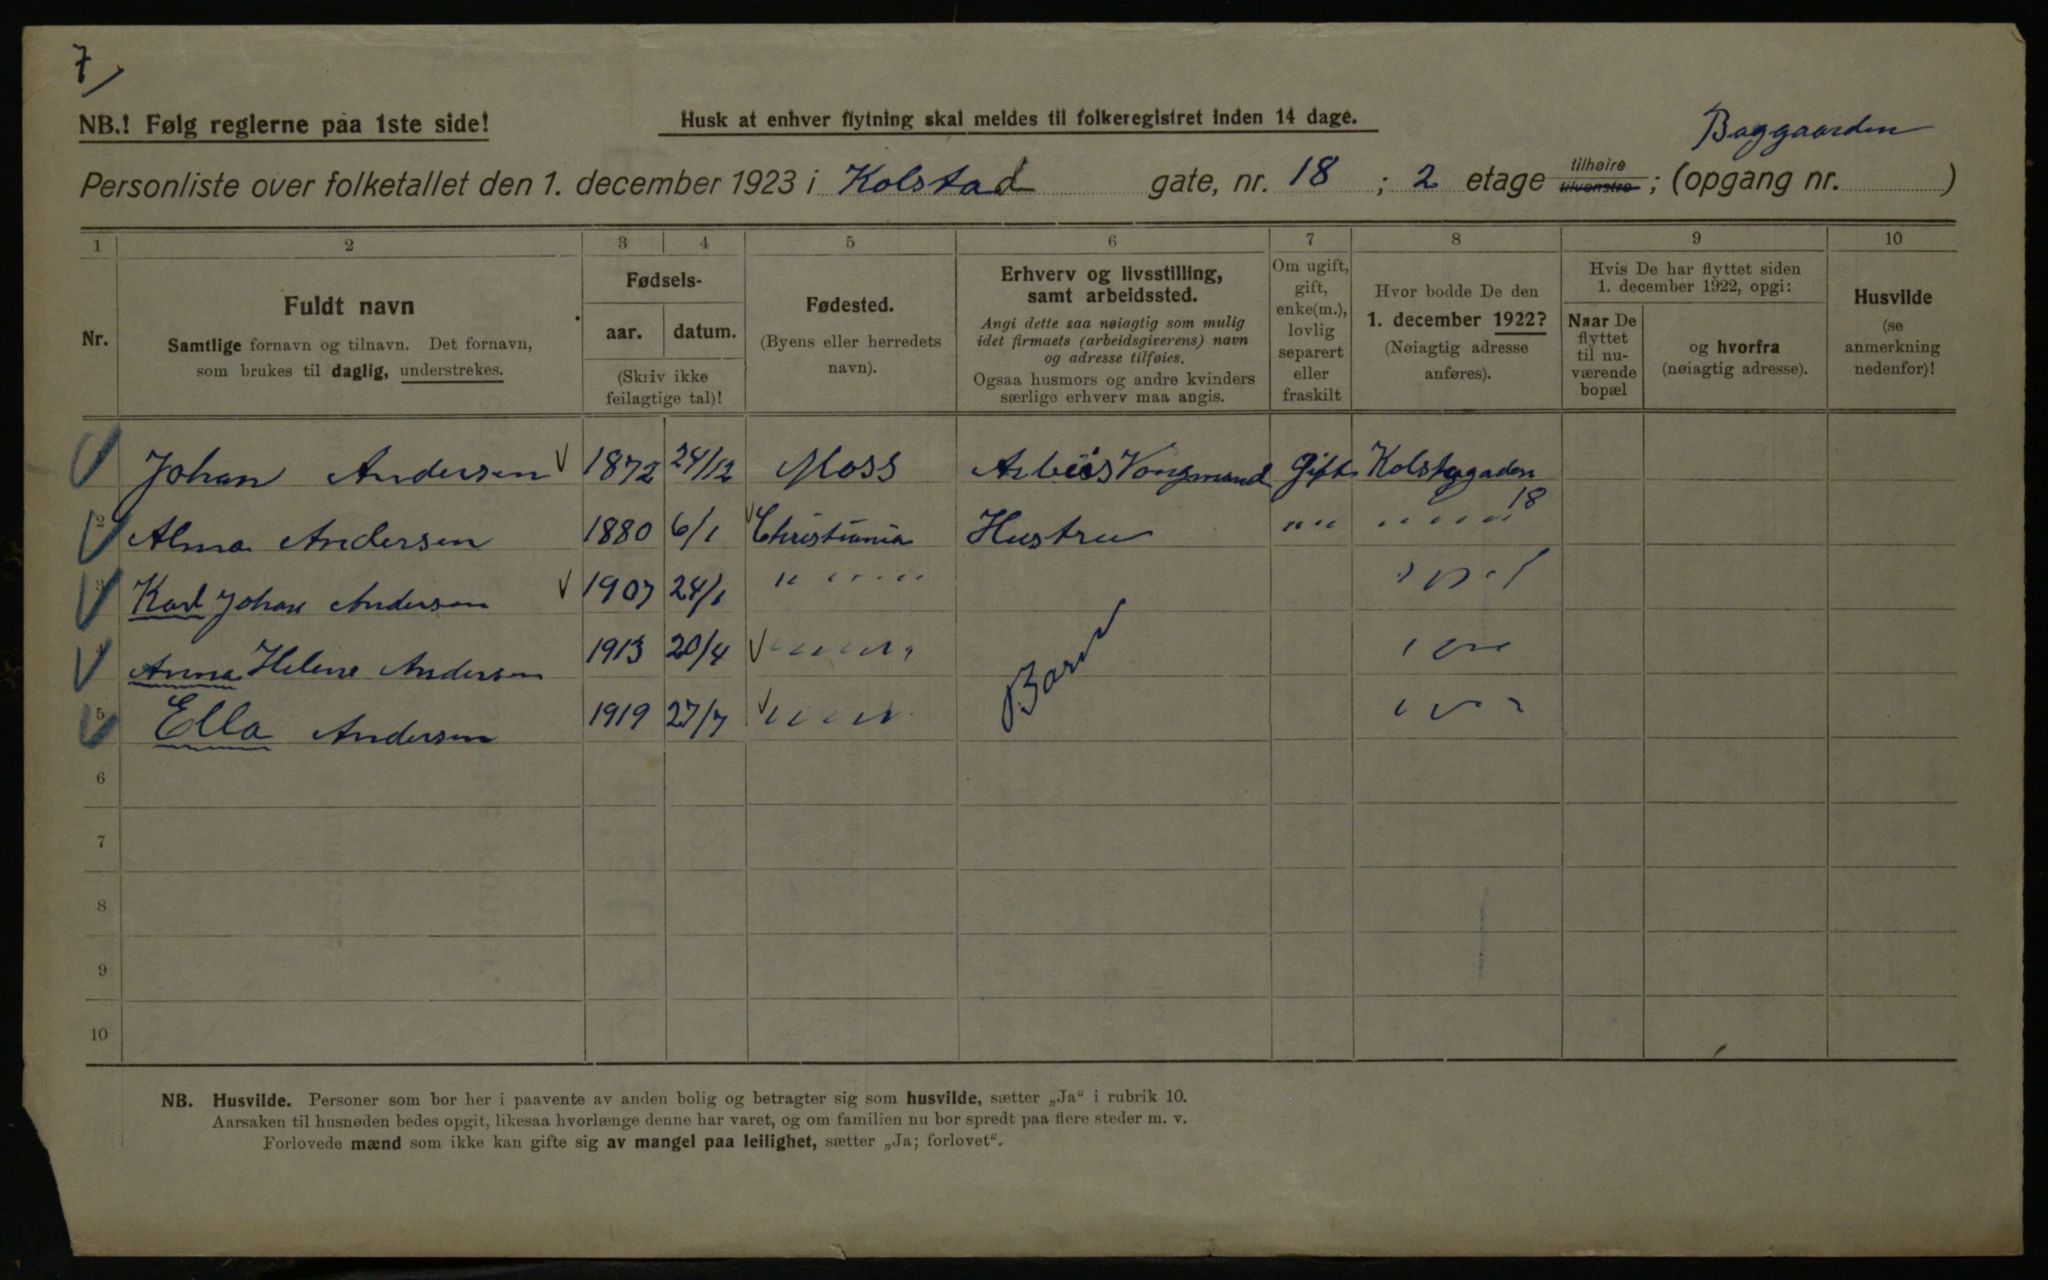 7
NB.! Følg reglerne paa 1ste side!
Husk at enhver flytning skal meldes til folkeregistret inden 14 dage.
Baggaarden
Personliste over folketallet den 1. december 1923 i Kolstad gate, nr. 18 ; 2 etage tilhøire tilvenstre ; (opgang nr. )
1 2 3 4 5 6 7 8 9 10
Nr.
Fuldt navn
Samtlige fornavn og tilnavn. Det fornavn,
som brukes til daglig, understrekes.
Fødsels-
aar. datum.
(Skriv ikke
feilagtige tal)!
Fødested.
(Byens eller herredets
navn).
Erhverv og livsstilling,
samt arbeidssted.
Angi dette saa nøiagtig som mulig
idet firmaets (arbeidsgiverens) navn
og adresse tilføies.
Ogsaa husmors og andre kvinders
særlige erhverv maa angis.
Om ugift,
gift,
enke(m.),
lovlig
separert
eller
fraskilt
Hvor bodde De den
1. december 1922?
(Nøiagtig adresse
anføres).
Hvis De har flyttet siden
1. december 1922, opgi:
Naar De
flyttet
til nu-
værende
bopæl
og hvorfra
(nøiagtig adresse).
Husvilde
(se
anmerkning
nedenfor)!
Johan Andersen 1872 24/12 Moss Gift
18
2 Alma Andersen 1880 6/1 Christiania Hustru " " " " " "
Karl Johan Andersen 1907 24/1 " " " " "
4 Anna Helene Andersen 1913 20/4 " " " "
Barn
5 Ella Andersen 1919 27/7 " " " "
6
7
8
9
10
NB. Husvilde. Personer som bor her i paavente av anden bolig og betragter sig som husvilde, sætter „Ja“ i rubrik 10.
Aarsaken til husnøden bedes opgit, likesaa hvorlænge denne har varet, og om familien nu bor spredt paa flere steder m. v.
Forlovede mænd som ikke kan gifte sig av mangel paa leilighet, sætter „Ja; forlovet“.